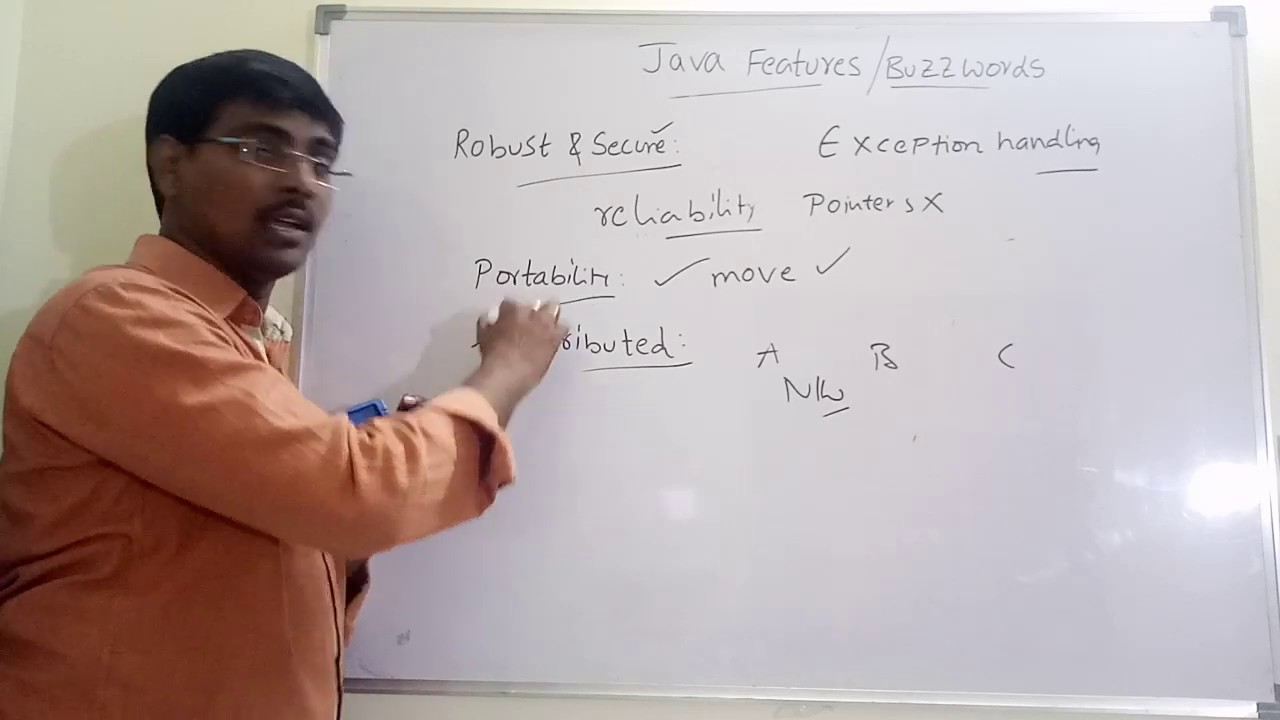 Java Features/Buzzwords
Robust & Secure: Exception handling
reliability Pointers X
Portability: ✓ move ✓
ributed: A B C
N/W